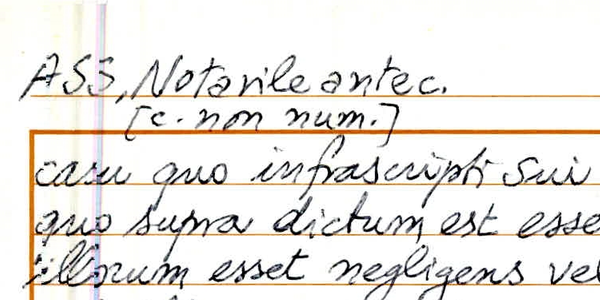 ASS, Notarile antec.
[c. non num.]
casu quo infrascripti sui
quo supra dictum est esse
illorum esset negligens vel